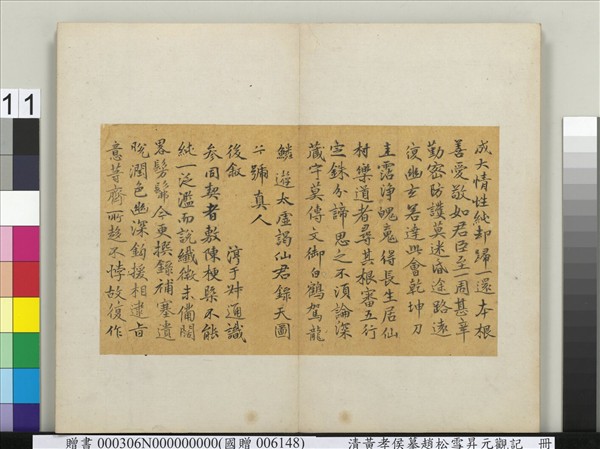 成大情性純却歸一還本根
善愛敬如君臣至一周甚辛
勤密防護莫迷昏途路遠
復幽玄若達此會乾坤刀
圭霑淨魄魂得長生居仙
村樂道者尋其根審五行
定銖分諦思之不須論深
藏守莫傳文御白鶴駕龍
鱗遊太虛謁仙君錄天圖
號真人
後敘 淳于叔通識
參同契者敷陳梗槩不能
純一泛濫而說纖微未備闊
畧髣髴今更撰錄補塞遺
脫潤色幽深鉤援相逮旨
意等齊所趍不悖故復作
11
11
贈書 000306N000000000(國贈 006148) 清黃孝侯摹趙松雪昇元觀記 冊